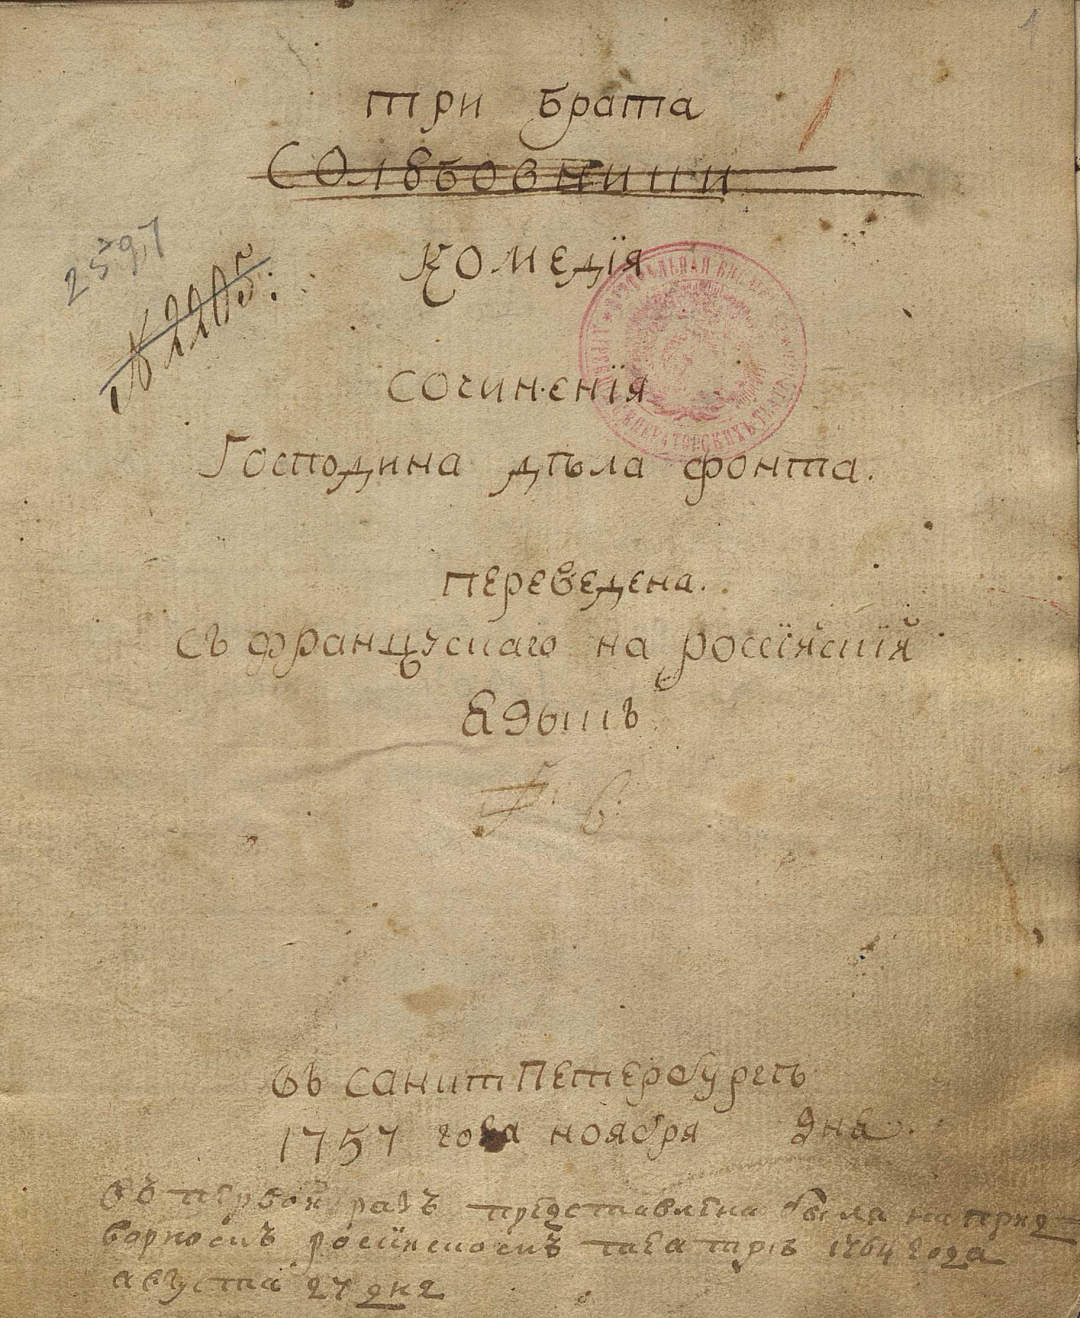 1
три брата
Солюбовники
2597
№ 2205.
Комедїя
сочиненїя
Господина дѣла фонта.
переведена.
съ французскаго на россїискїй
языкъ
въ санктПетербургѣ
1757 года ноября дня.
въ первои разъ представлена была на прид
ворномъ росїискомъ театрѣ 1764 года
августа 27 дня